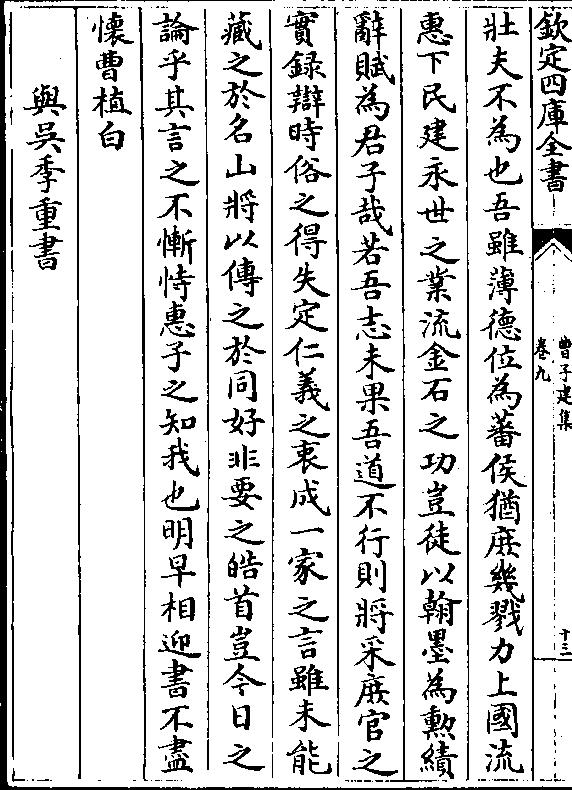 欽定四庫全書
曹子建集
卷九
十三
壯夫不為也吾雖薄德位為蕃侯猶庶幾戮力上國流
惠下民建永世之業流金石之功豈徒以翰墨為勲績
辭賦為君子哉若吾志未果吾道不行則將采庶官之
實録辯時俗之得失定仁義之衷成一家之言雖未能
藏之於名山將以傳之於同好非要之皓首豈今日之
論乎其言之不慚恃惠子之知我也明早相迎書不盡
懷曹植白
與吳季重書